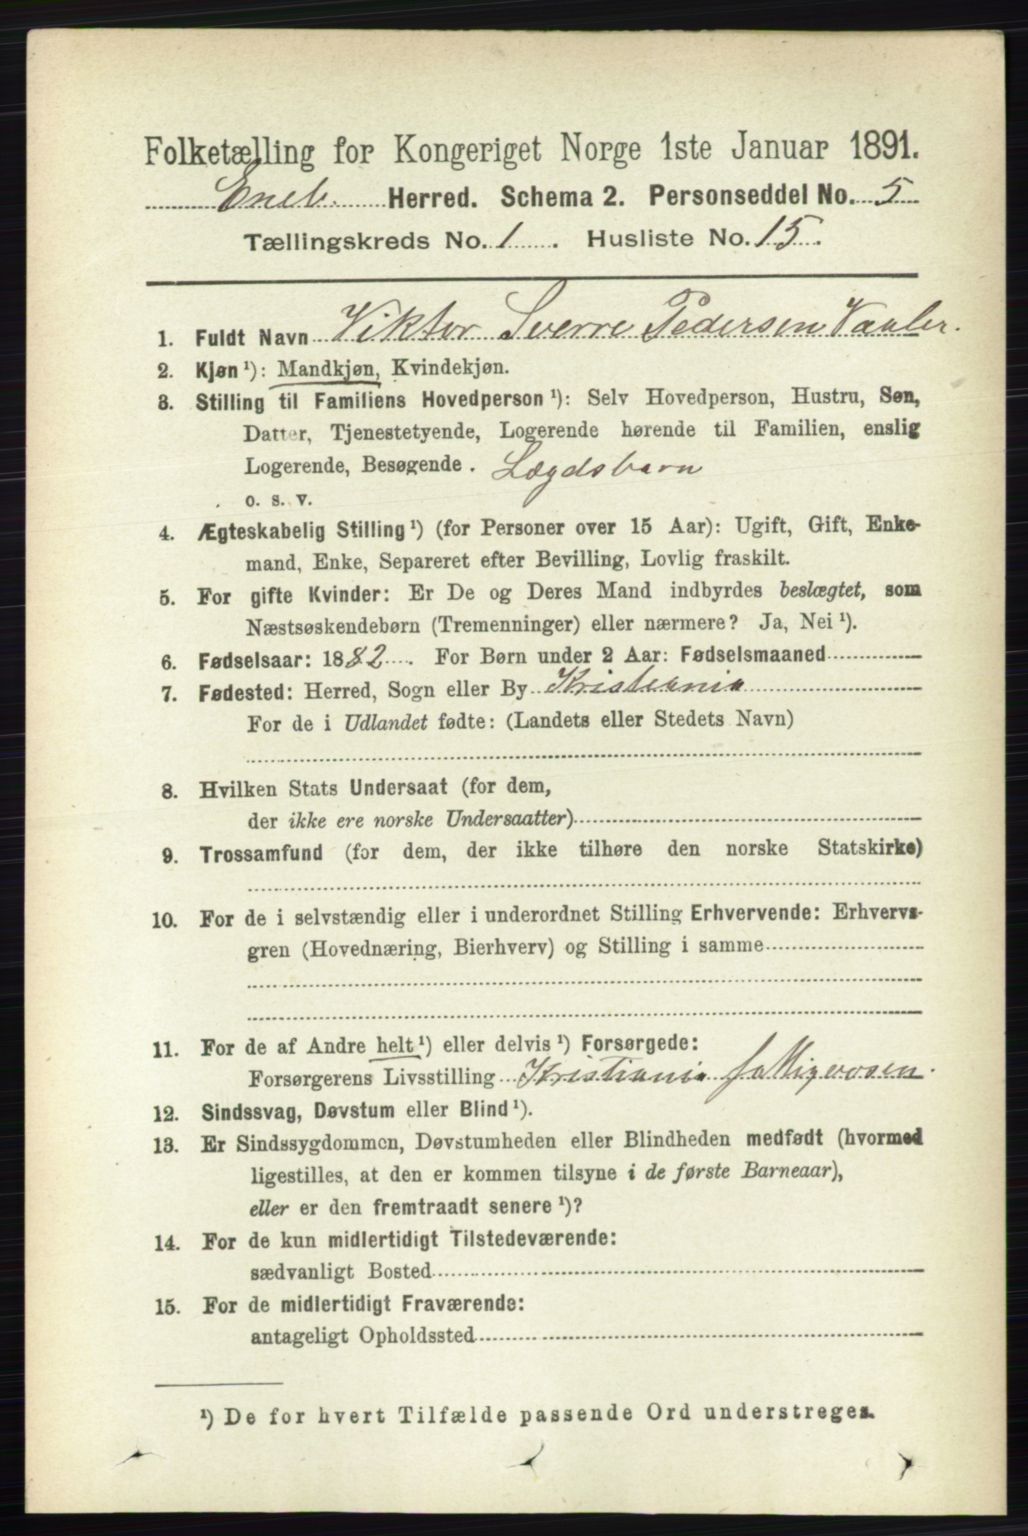 Folketælling for Kongeriget Norge 1ste Januar 1891.
Eneb. Herred. Schema 2. Personseddel No. 5
Tællingskreds No. 1. Husliste No. 15.
1. Fuldt Navn Viktor Sverre Pedersen Vaaler.
2. Kjøn ¹): Mandkjøn, Kvindekjøn.
3. Stilling til Familiens Hovedperson ¹): Selv Hovedperson, Hustru, Søn,
Datter, Tjenestetyende, Logerende hørende til Familien, enslig
Logerende, Besøgende. Lægdsbarn
o. s. v.
4. Ægteskabelig Stilling ¹) (for Personer over 15 Aar): Ugift, Gift, Enke-
mand, Enke, Separeret efter Bevilling, Lovlig fraskilt.
5. For gifte Kvinder: Er De og Deres Mand indbyrdes beslægtet, som
Næstsøskendebørn (Tremenninger) eller nærmere? Ja, Nei ¹).
6. Fødselsaar: 1882. For Børn under 2 Aar: Fødselsmaaned
7. Fødested: Herred, Sogn eller By Kristiania
For de i Udlandet fødte: (Landets eller Stedets Navn)
8. Hvilken Stats Undersaat (for dem,
der ikke ere norske Undersaatter)
9. Trossamfund (for dem, der ikke tilhøre den norske Statskirke)
10. For de i selvstændig eller i underordnet Stilling Erhvervende: Erhvervs-
gren (Hovednæring, Bierhverv) og Stilling i samme
11. For de af Andre helt ¹) eller delvis ¹) Forsørgede:
Forsørgerens Livsstilling Kristiania fattigvæsen.
12. Sindssvag, Døvstum eller Blind ¹).
13. Er Sindssygdommen, Døvstumheden eller Blindheden medfødt (hvormed
ligestilles, at den er kommen tilsyne i de første Barneaar),
eller er den fremtraadt senere ¹)?
14. For de kun midlertidigt Tilstedeværende:
sædvanligt Bosted
15. For de midlertidigt Fraværende:
antageligt Opholdssted
¹) De for hvert Tilfælde passende Ord understreges.